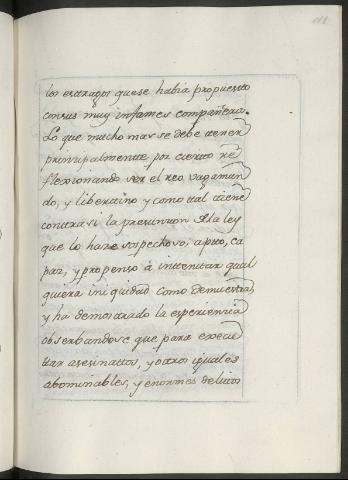 los estragos que se habia propuesto
con sus muy infames compañeros.
Lo que mucho mas se debe tener
principalmente por cierto re
flexionando ser el reo vagamun
do, y libertino y como tal tiene
contra si la presuncion de la ley
que lo haze sospechoso, apto, ca
paz, y propenso à intentar qual
quiera iniquidad como demuestra,
y ha demostrado la esperiencia
observandose que para execu
tar asesinattos, y otros iguales
abominables, y enormes delitos